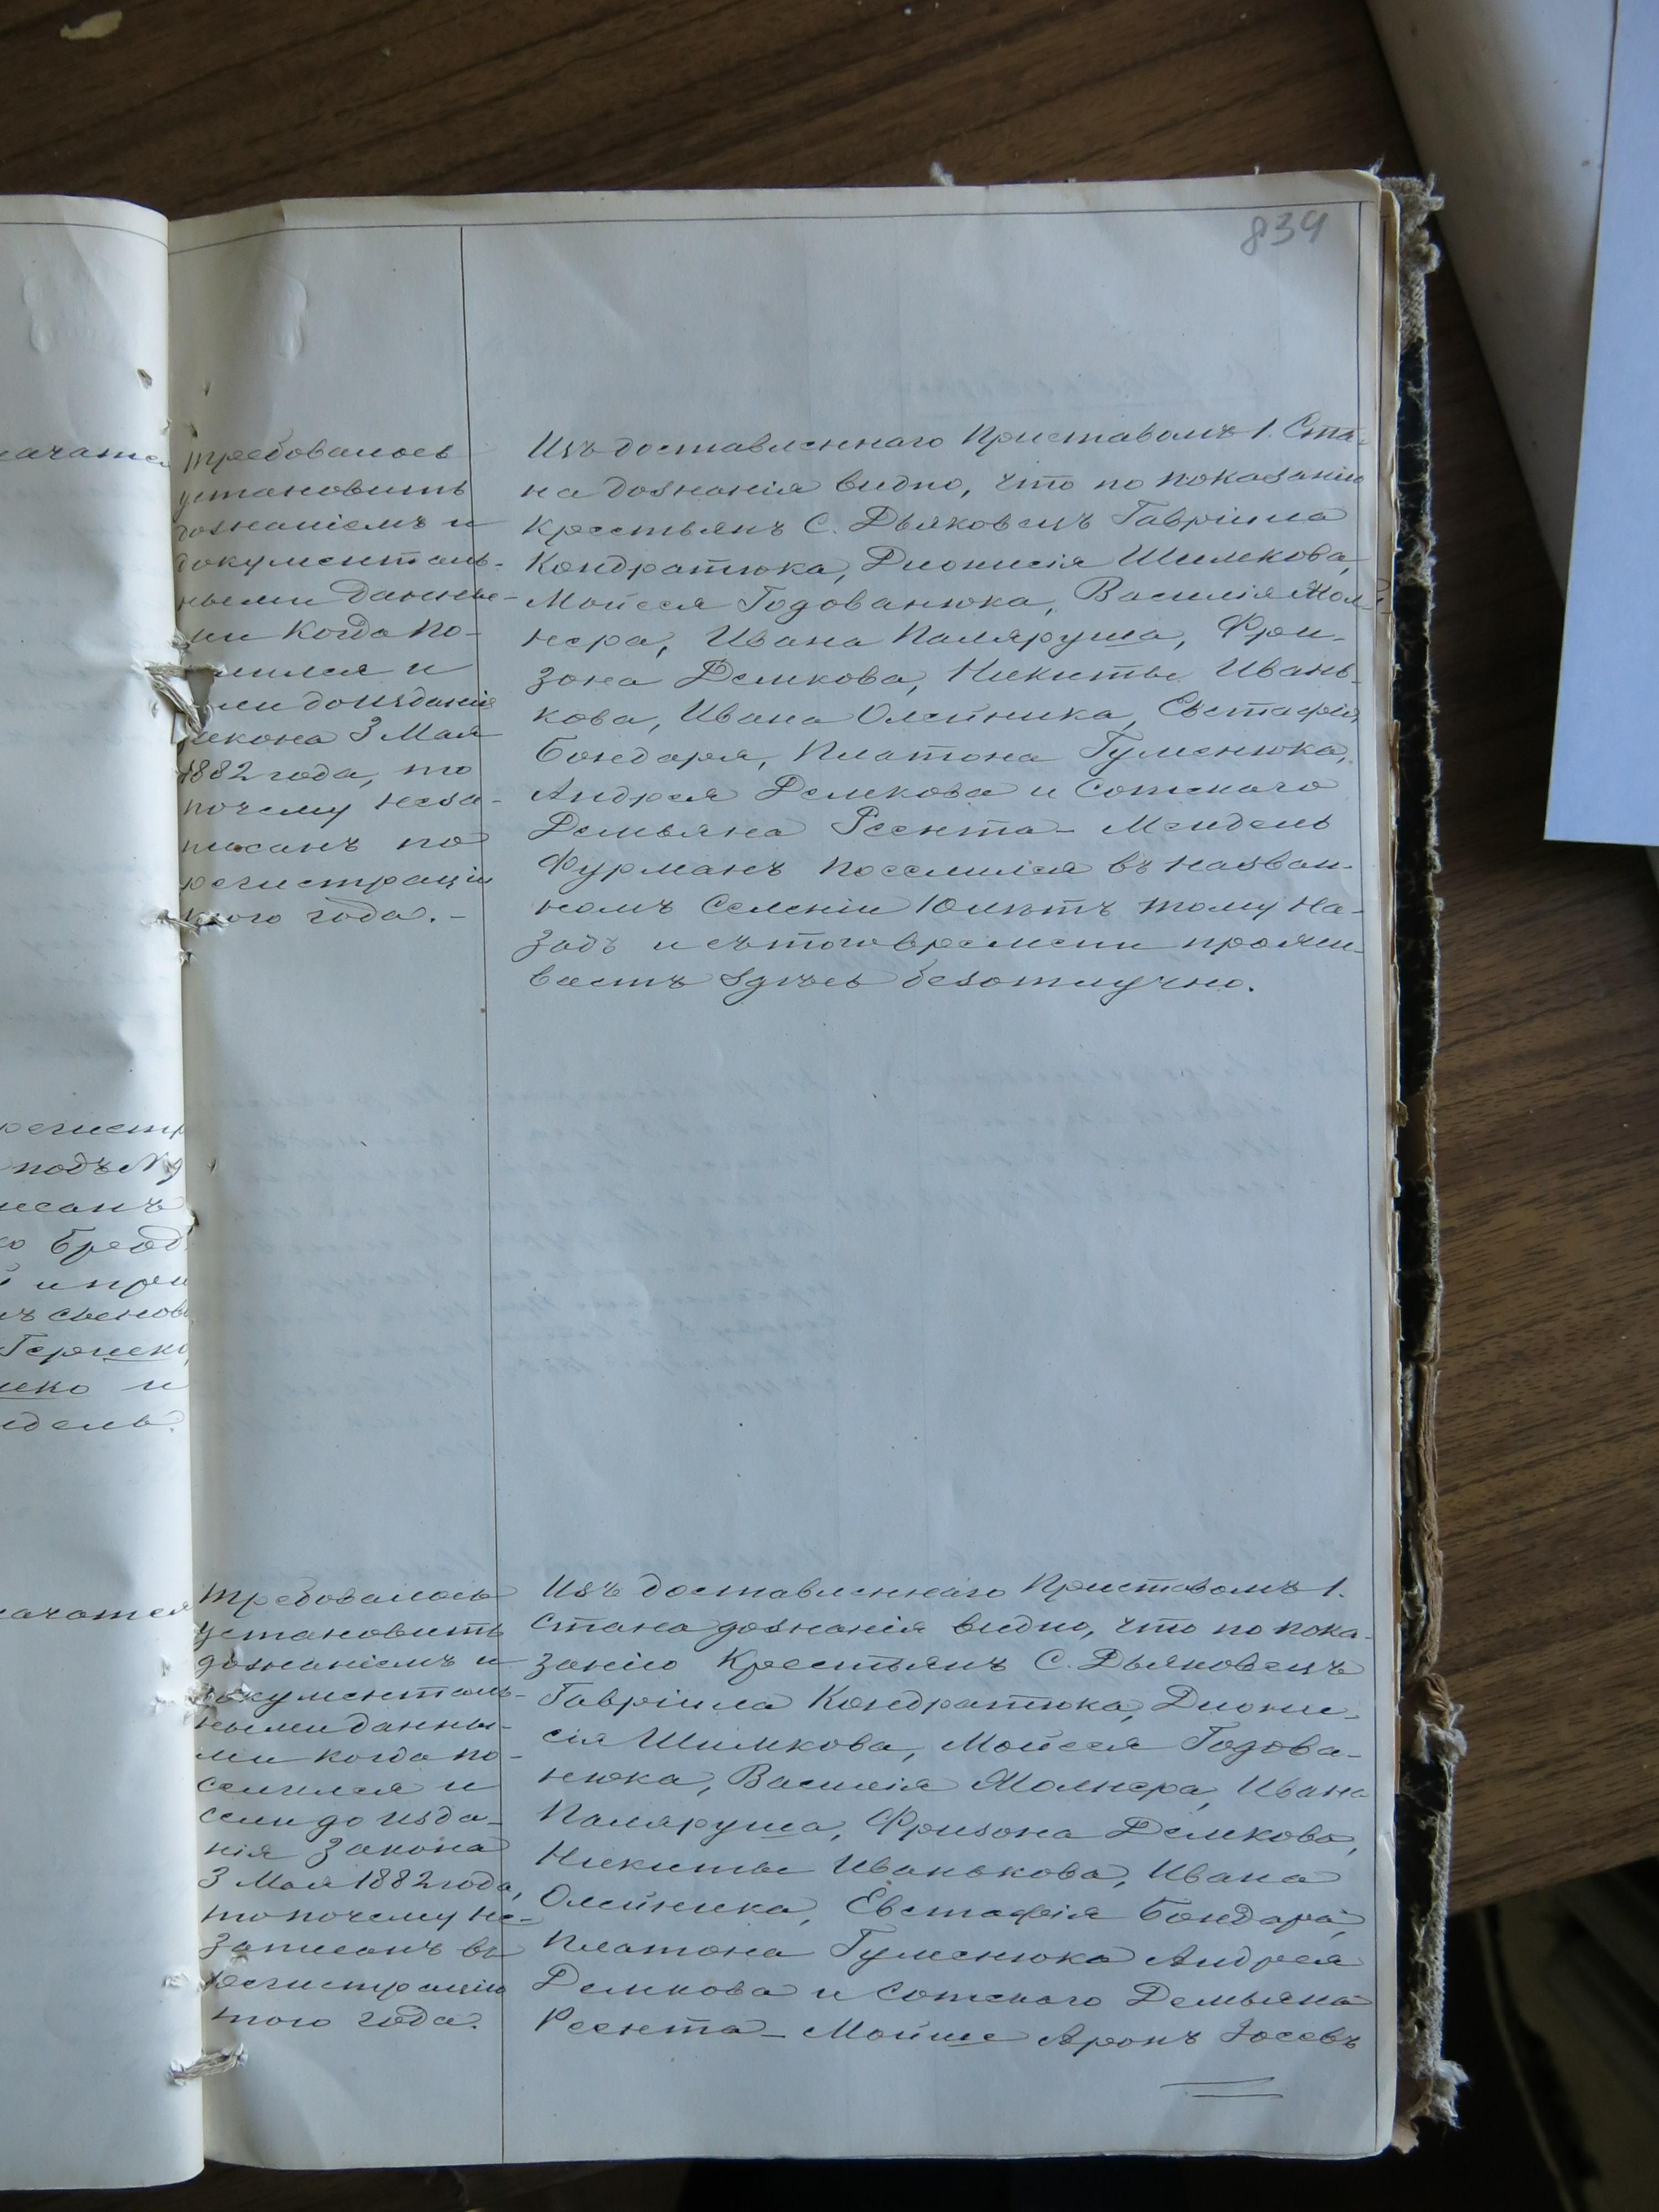 834
требовалось
установить
дознаніемъ и
документаль-
ными данны-
ми когда по-
милися и
ли до изданія
закона 3 Мая
1882 года, то
почему неза-
писанъ по
регистраціи
того года.-
Изъ доставленнаго Приставомъ 1. Ста-
на дознанія видно, что по показанію
крестьянъ С. Дьяковецъ Гавріила
Кондратюка, Діонисія Шимкова,
Мойсея Годованюка, Василія Мол-
нера, Ивана Паляруша, Фри-
зона Демкова, Никиты Ивань-
кова, Ивана Олейника, Евстафія
Бондаря, Платона Гуменюка,
Андрея Демкова и Сотскаго
Демьяна Реента - Мендель
Фурманъ поселился въ назван-
номъ Селеніи 10 лѣтъ тому на-
задъ и съ того времени прожи-
ваетъ здѣсь безотлучно.
требовалось
установить
дознаніемъ и
документаль-
ными данны-
ми когда по-
селился и
если до изда-
нія закона
3 Мая 1882 года,
то почему не-
записанъ въ
регистрацію
того года.
Изъ доставленнаго Приставомъ 1.
Стана дознанія видно, что по пока-
занію Крестьянъ С. Дьяковецъ
Гавріила Кондратюка, Діони-
сія Шимкова, Мойсея Годова-
нюка, Василія Молнера, Ивана
Паляруша, Фризона Демкова,
Никиты Иванькова, Ивана
Олейника, Евстафія Бондаря,
Платона Гуменюка Андрея
Демкова и Сотскаго Демьяна
Реента - Мойше Аронъ Іосевъ